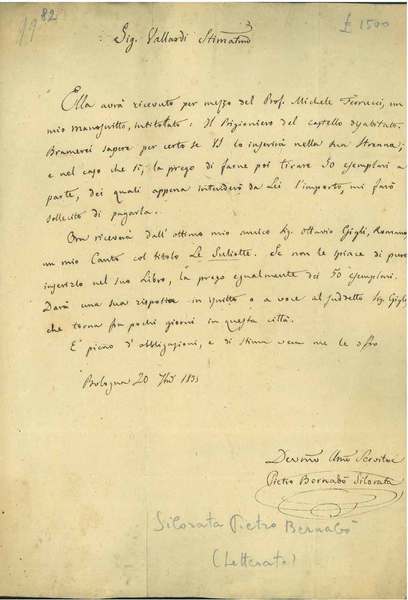 82
£ 1500
Sig. Vallardi Stimatmo
Ella avrà ricevuto per mezzo del Prof. Michele Ferrucci, un
mio manoscritto, intitolato: Il Prigioniero del castello disabitato.
Bramerei sapere per certo se Ella lo inserirà nella sua Strenna;
e nel caso che sì, la prego di farne poi tirare 50 esemplari a
parte, dei quali appena intenderò da Lei l'importo, mi farò
sollecito di pagarla.
Ora riceverà dall'ottimo mio amico Sig. Ottavio Gigli, Romano
un mio Canto col titolo Le Suliotte. Se non le spiace di pure
inserirlo nel suo Libro, la prego egualmente dei 50 esemplari.
Darà una sua risposta in iscritto o a voce al suddetto Sig. Gigli
che torna fra pochi giorni in questa città.
E pieno d'obbligazioni, e di stima vera me le offro
Bologna 20
Devmo Umo Servitore
Pietro Bernabò Silorata
Silorata Pietro Bernabò
(Letterato)